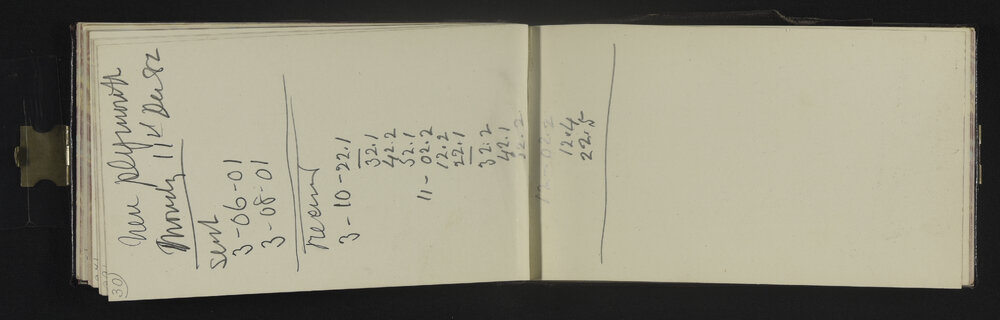 30
New Plymouth
Monday 11th Dec 82
Sent
3-06-01
3-08-01
Received
3-10-22.1
32.1
42.2
52.1
11-02.2
12.2
22.1
32.2
42.1
52.2
12-02.2
12.4
22.5